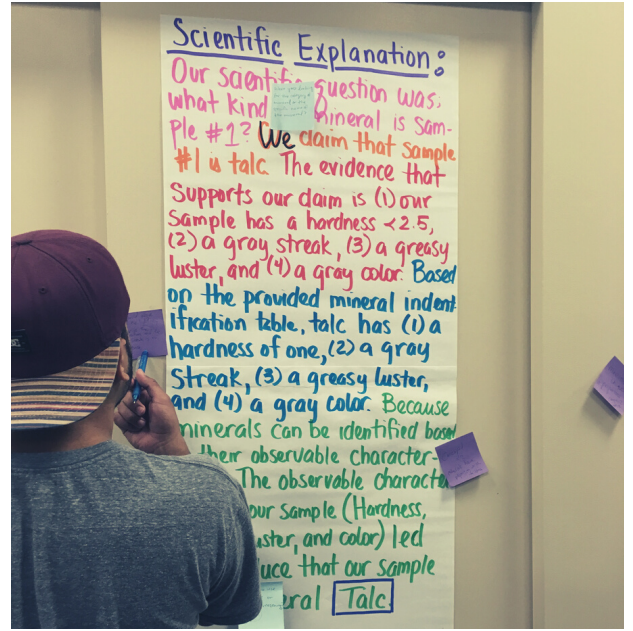 Scientific Explanation:
Our scientific question was:
what kind mineral is Sam-
ple #1? We claim that sample
#1 is talc. The evidence that
Supports our claim is (1) our
Sample has a hardness <2.5,
(2) a gray streak, (3) a greasy
luster, and (4) a gray color. Based
on the provided mineral indent
ification table, talc has (1) a
hardness of one, (2) a gray
Streak, (3) a greasy luster,
and (4) a gray color. Because
minerals can be identified based
their observable character-
The observable charact
our sample (Hardness,
uster, and color) led
uce that our sample
eral Talc